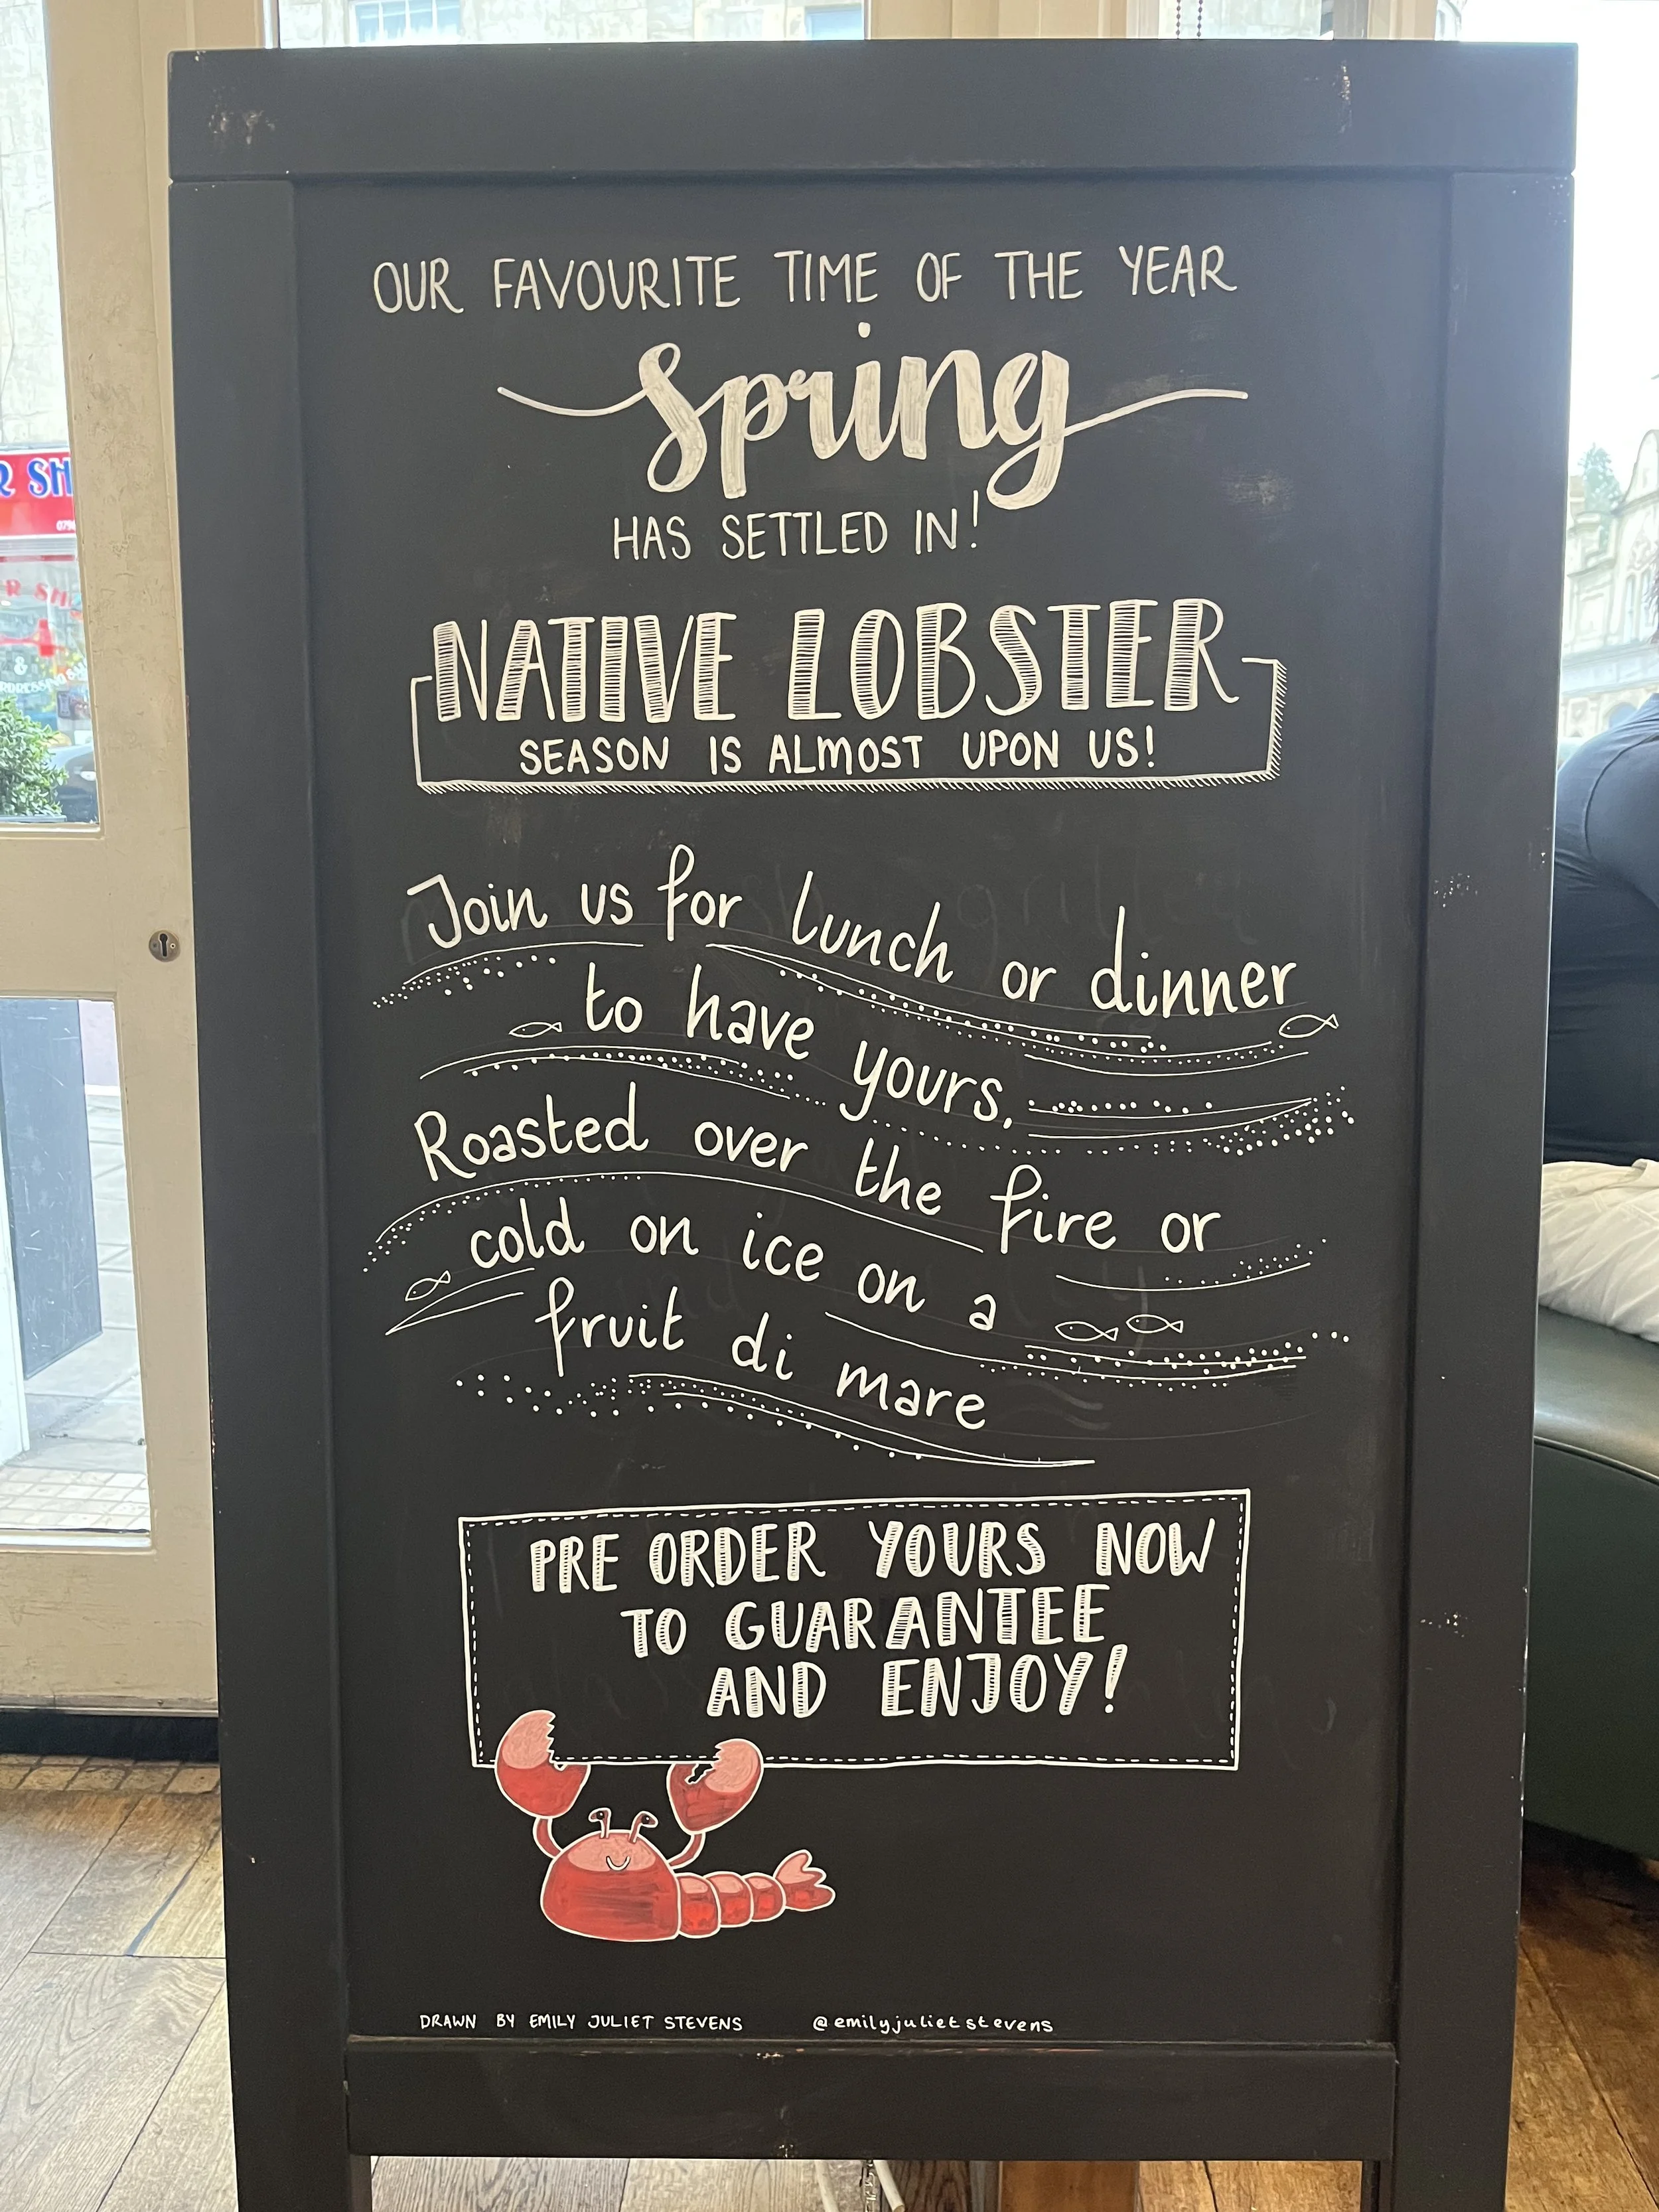 OUR FAVOURITE TIME OF THE YEAR
Spring
HAS SETTLED IN!
NATIVE LOBSTER
SEASON IS ALMOST UPON US!
Join us for lunch or dinner
to have yours,
Roasted over the fire or
cold on ice on a
fruit di mare
PRE ORDER YOURS NOW
TO GUARANTEE
AND ENJOY!
DRAWN BY EMILY JULIET STEVENS @emilyjulietstevens